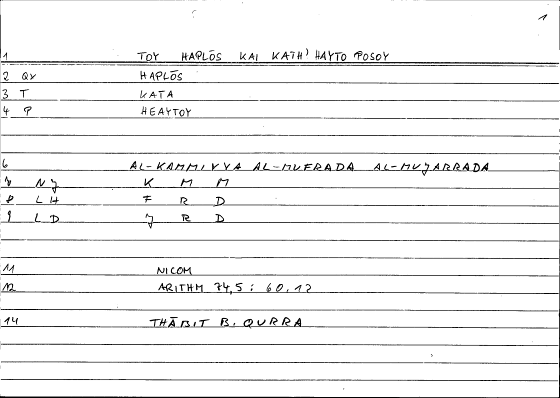 1
1 TOY HAPLŌS KAI KATH' HAYTO POSOY
2 QY HAPLŌS
3 T KATA
4 P HEAYTOY
6 AL-KAMMIYYA AL-MUFRADA AL-MUJARRADA
7 NJ K M M
8 LH F R D
9 LD J R D
11 NICOM
12 ARITHM 74,5 : 60.12
14 THĀBIT B. QURRA